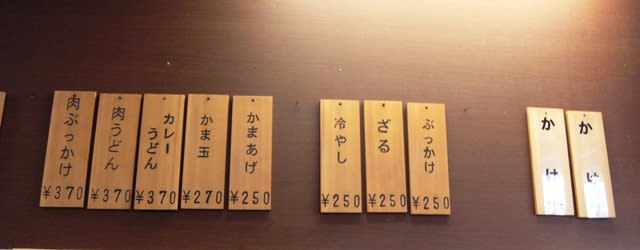 肉ぶっかけ
¥370
肉うどん
¥370
カレー
うどん
¥370
かま玉
¥270
かまあげ
¥250
冷やし
¥250
ざる
¥250
ぶっかけ
¥250
かけ
かけ